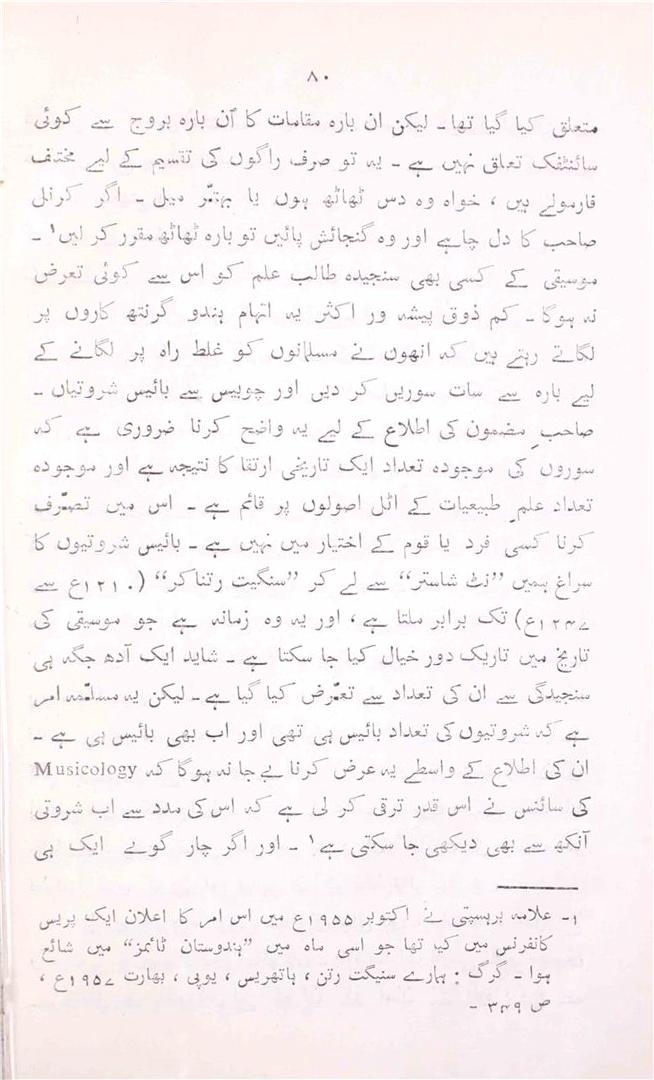 ۸۰
متعلق کیا گیا تھا ۔ لیکن ان بارہ مقامات کا اُن بارہ بروج سے کوئی
سائنٹفک تعلق نہیں ہے ۔ یہ تو صرف راگوں کی تقسیم کے لیے مختلف
فارمولے ہیں ، خواہ وہ دس ٹھاٹھ ہوں یا بہتّر میل ۔ اگر کرنل
صاحب کا دل چاہے اور وہ گنجائش پائیں تو بارہ ٹھاٹھ مقرر کر لیں۱ ۔
موسیقی کے کسی بھی سنجیدہ طالب علم کو اس سے کوئی تعرض
نہ ہوگا ۔ کم ذوق پیشہ ور اکثر یہ اتہام ہندو گرنتھ کاروں پر
لگاتے رہتے ہیں کہ انھوں نے مسلمانوں کو غلط راہ پر لگانے کے
لیے بارہ سے سات سوریں کر دیں اور چوبیس سے بائیس شروتیاں ۔
صاحبِ مضمون کی اطلاع کے لیے یہ واضح کرنا ضروری ہے کہ
سوروں کی موجودہ تعداد ایک تاریخی ارتقا کا نتیجہ ہے اور موجودہ
تعداد علمِ طبیعیات کے اٹل اصولوں پر قائم ہے ۔ اس میں تصرّف
کرنا کسی فرد یا قوم کے اختیار میں نہیں ہے ۔ بائیس شروتیوں کا
سراغ ہمیں ”نٹ شاستر“ سے لے کر ”سنگیت رتناکر“ (۱۲۱۰ع سے
۱۲۴۷ع) تک برابر ملتا ہے ، اور یہ وہ زمانہ ہے جو موسیقی کی
تاریخ میں تاریک دور خیال کیا جا سکتا ہے ۔ شاید ایک آدھ جگہ ہی
سنجیدگی سے ان کی تعداد سے تعرّض کیا گیا ہے ۔ لیکن یہ مسلّمہ امر
ہے کہ شروتیوں کی تعداد بائیس ہی تھی اور اب بھی بائیس ہی ہے ۔
ان کی اطلاع کے واسطے یہ عرض کرنا بے جا نہ ہوگا کہ Musicology
کی سائنس نے اس قدر ترقی کر لی ہے کہ اس کی مدد سے اب شروتی
آنکھ سے بھی دیکھی جا سکتی ہے۱ ۔ اور اگر چار گویے ایک ہی
۱۔ علامہ برہسپتی نے اکتوبر ۱۹۵۵ع میں اس امر کا اعلان ایک پریس
کانفرنس میں کیا تھا جو اسی ماہ میں ”ہندوستان ٹائمز“ میں شائع
ہوا ۔ گرگ : ہمارے سنیگت رتن ، ہاتھریس ، یوپی ، بھارت ۱۹۵۷ع ،
ص ۳۴۹ ۔